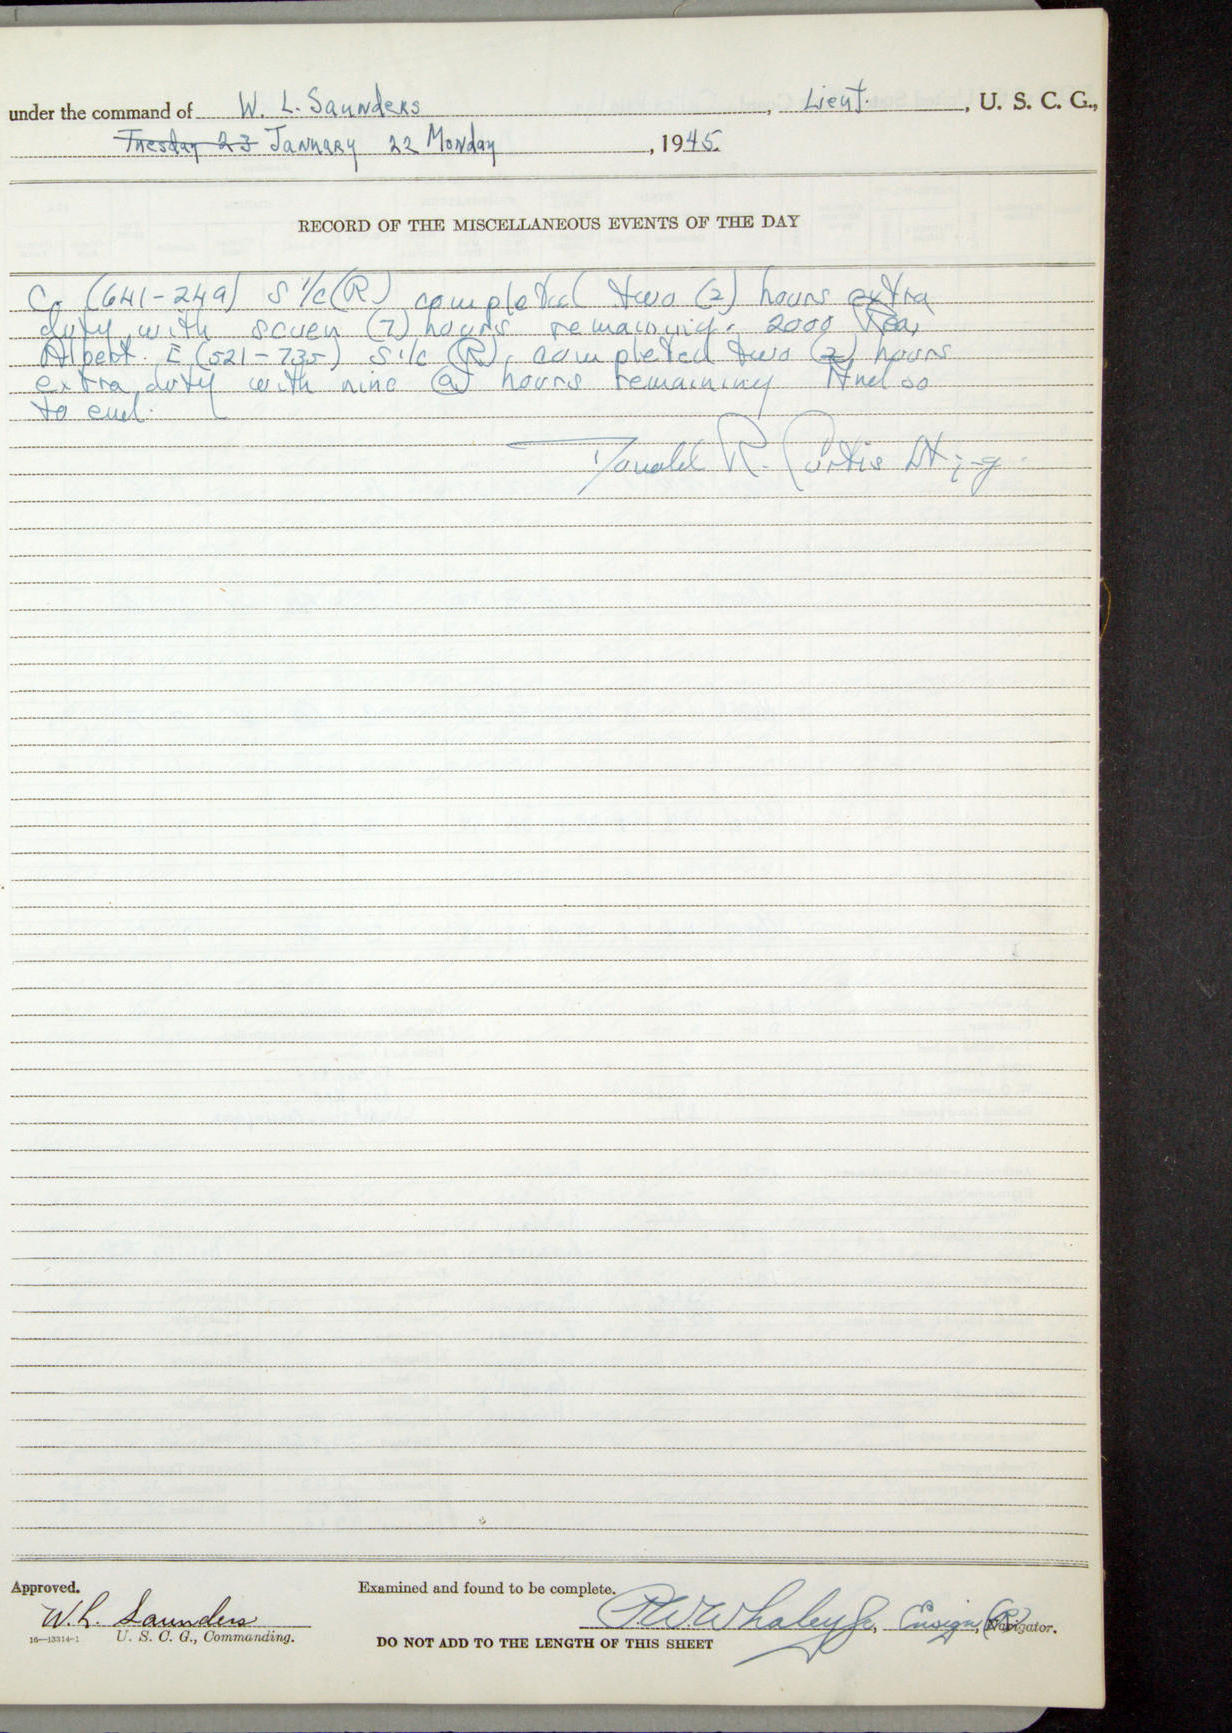 under the command of W. L. Saunders, Lieut., U. S. C. G.,
Tuesday 23 January 22 Monday, 1945.
RECORD OF THE MISCELLANEOUS EVENTS OF THE DAY
(641-249) S 1/c (R) completed two (2) hours extra
duty with seven (7) hours remaining. 2000
Albert. E (521-735) S 1/c (R), completed two (2) hours
extra duty with nine (9) hours remaining And so
to end.
Donald R. Curtis Lt. j-g.
Approved.
Examined and found to be complete.
W. L. Saunders
R W Whaley Jr., Ensign, (R) Navigator.
16—13314-1 U. S. C. G., Commanding.
DO NOT ADD TO THE LENGTH OF THIS SHEET